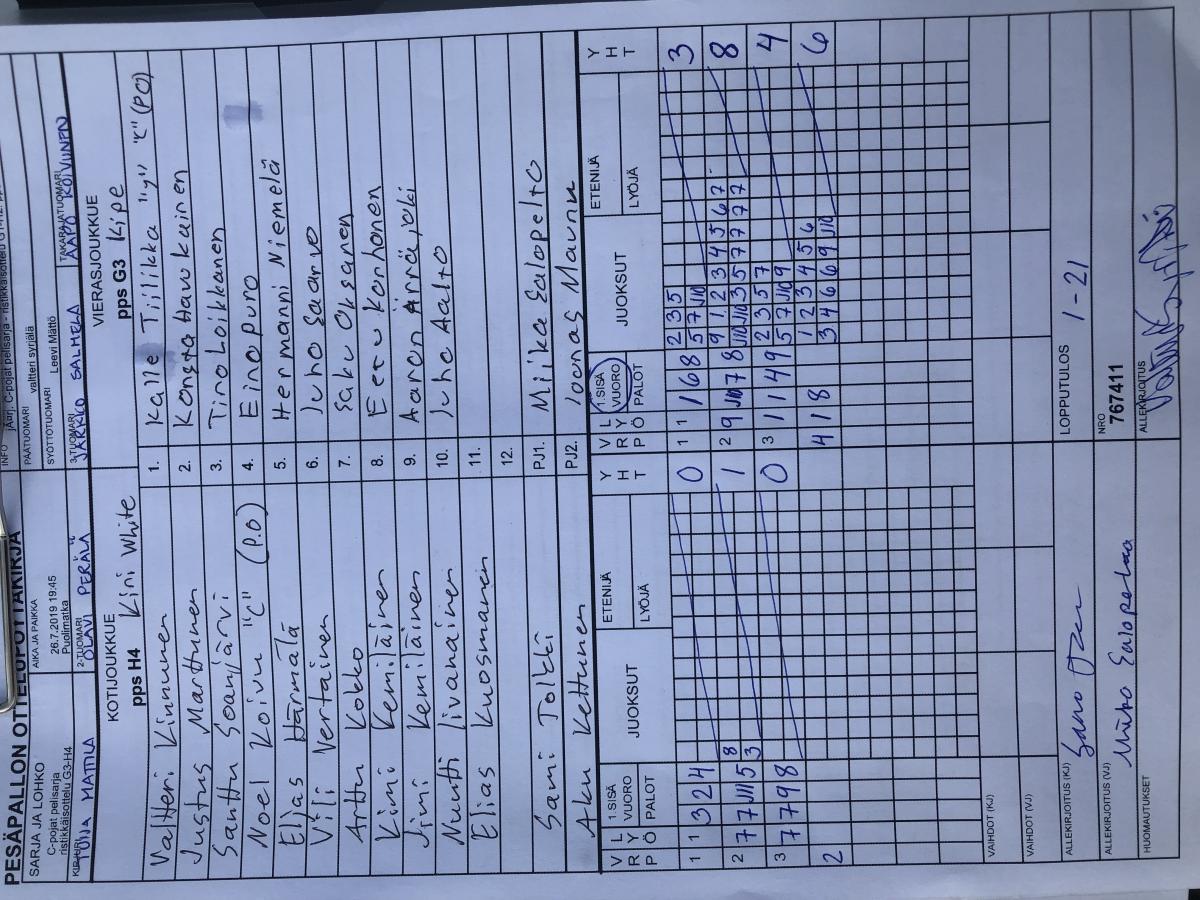 PESÄPALLON OTTELUPÖYTÄKIRJA
SARJA JA LOHKO
C-pojat pelisarja
ristikkäisottelu G3-H4
AIKA JA PAIKKA
26.7.2019 19:45
Puolimatka
INFO
PÄÄTUOMARI valtteri syrjälä
SYÖTTÖTUOMARI Leevi Mättö
KIRJURI TUIJA MATTILA
2-TUOMARI OLAVI PERÄLÄ
3-TUOMARI JARKKO SALMELA
TAKARAJATUOMARI AAPO KOIVUNEN
KOTIJOUKKUE
pps H4 Kini White
VIERASJOUKKUE
pps G3 Kipe
Valtteri Kinnunen 1. Kalle Tiilikka "y" "C" (PO)
Justus Marttunen 2. Konsta Haukkainen
Santtu Soanjärvi 3. Tino Loikkanen
Noel Koivu "C" (P.O) 4. Eino Puro
Elias Härmälä 5. Hermanni Niemelä
Vili Vertainen 6. Juho Saarvo
Arttu Kokko 7. Saku Oksanen
Kimi Kemiläinen 8. Eetu Korhonen
Jimi Kemiläinen 9. Aaron Ärräjoki
Nuutti Iivanainen 10. Juho Aalto
Elias Kuosmanen 11.
12.
Sami Tolkki PJ1. Miika Ealopelto
Aku Kettunen PJ2. Joonas Maunu
V R P L Y Ö 1.SISÄ VUORO PALOT JUOKSUT ETENIJÄ LYÖJÄ Y H T
V R P L Y Ö 1.SISÄ VUORO PALOT JUOKSUT ETENIJÄ LYÖJÄ Y H T
1 1 3 2 4 0
1 1 1 6 8 2 3 5 3
5 7 J10
2 7 7 J11 5 8 1
3
2 9 J10 7 8 9 1 2 3 4 5 6 7 8
J10 J10 3 5 7 7 7 7
3 7 7 9 8 0
3 1 1 4 9 2 3 5 7 4
5 7 J10 9
2
4 1 8 1 2 3 4 5 6 6
3 4 6 6 9 J10
VAIHDOT (KJ)
VAIHDOT (VJ)
ALLEKIRJOITUS (KJ)
LOPPUTULOS 1-21
ALLEKIRJOITUS (VJ)
NRO 767411
HUOMAUTUKSET
ALLEKIRJOITUS